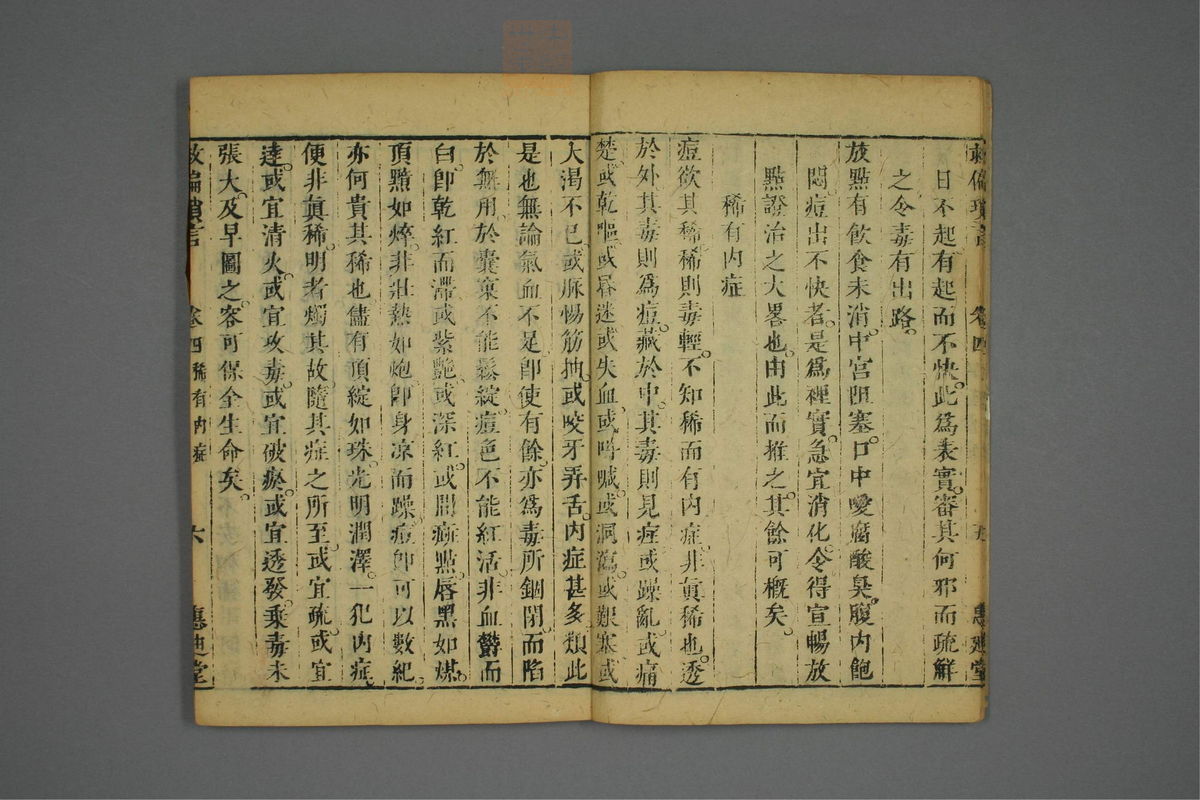 救偏瑣言 卷四 五 惠迪堂
日不起有起而不快此爲表實審其何邪而疏解
之令毒有出路
放點有飲食未消中宮阻塞口中嗳腐酸臭腹內飽
悶痘出不快者是爲裡實急宜消化令得宣暢放
點證治之大畧也由此而推之其餘可概矣
稀有內症
痘欲其稀稀則毒輕不知稀而有內症非眞稀也透
於外其毒則爲痘藏於中其毒則見症或躁亂或痛
楚或乾嘔或昏迷或失血或呌喊或洞瀉或艱塞或
大渴不已或脉惕筋抽或咬牙弄舌內症甚多類此
是也無論氣血不足卽使有餘亦爲毒所錮閉而陷
於無用於囊窠不能鬆綻痘色不能紅活非血欝而
白卽乾紅而滯或紫艷或深紅或間瘢點唇黑如煤
頂㸃如焠非壯熱如炮卽身凉而躁痘卽可以數紀
亦何貴其稀也儘有頂綻如珠光明潤澤一犯內症
便非眞稀明者燭其故隨其症之所至或宜疏或宜
達或宜清火或宜攻毒或宜破瘀或宜透發乘毒未
張大及早圖之容可保全生命矣
救偏瑣言 卷四 稀有內症 六 惠迪堂